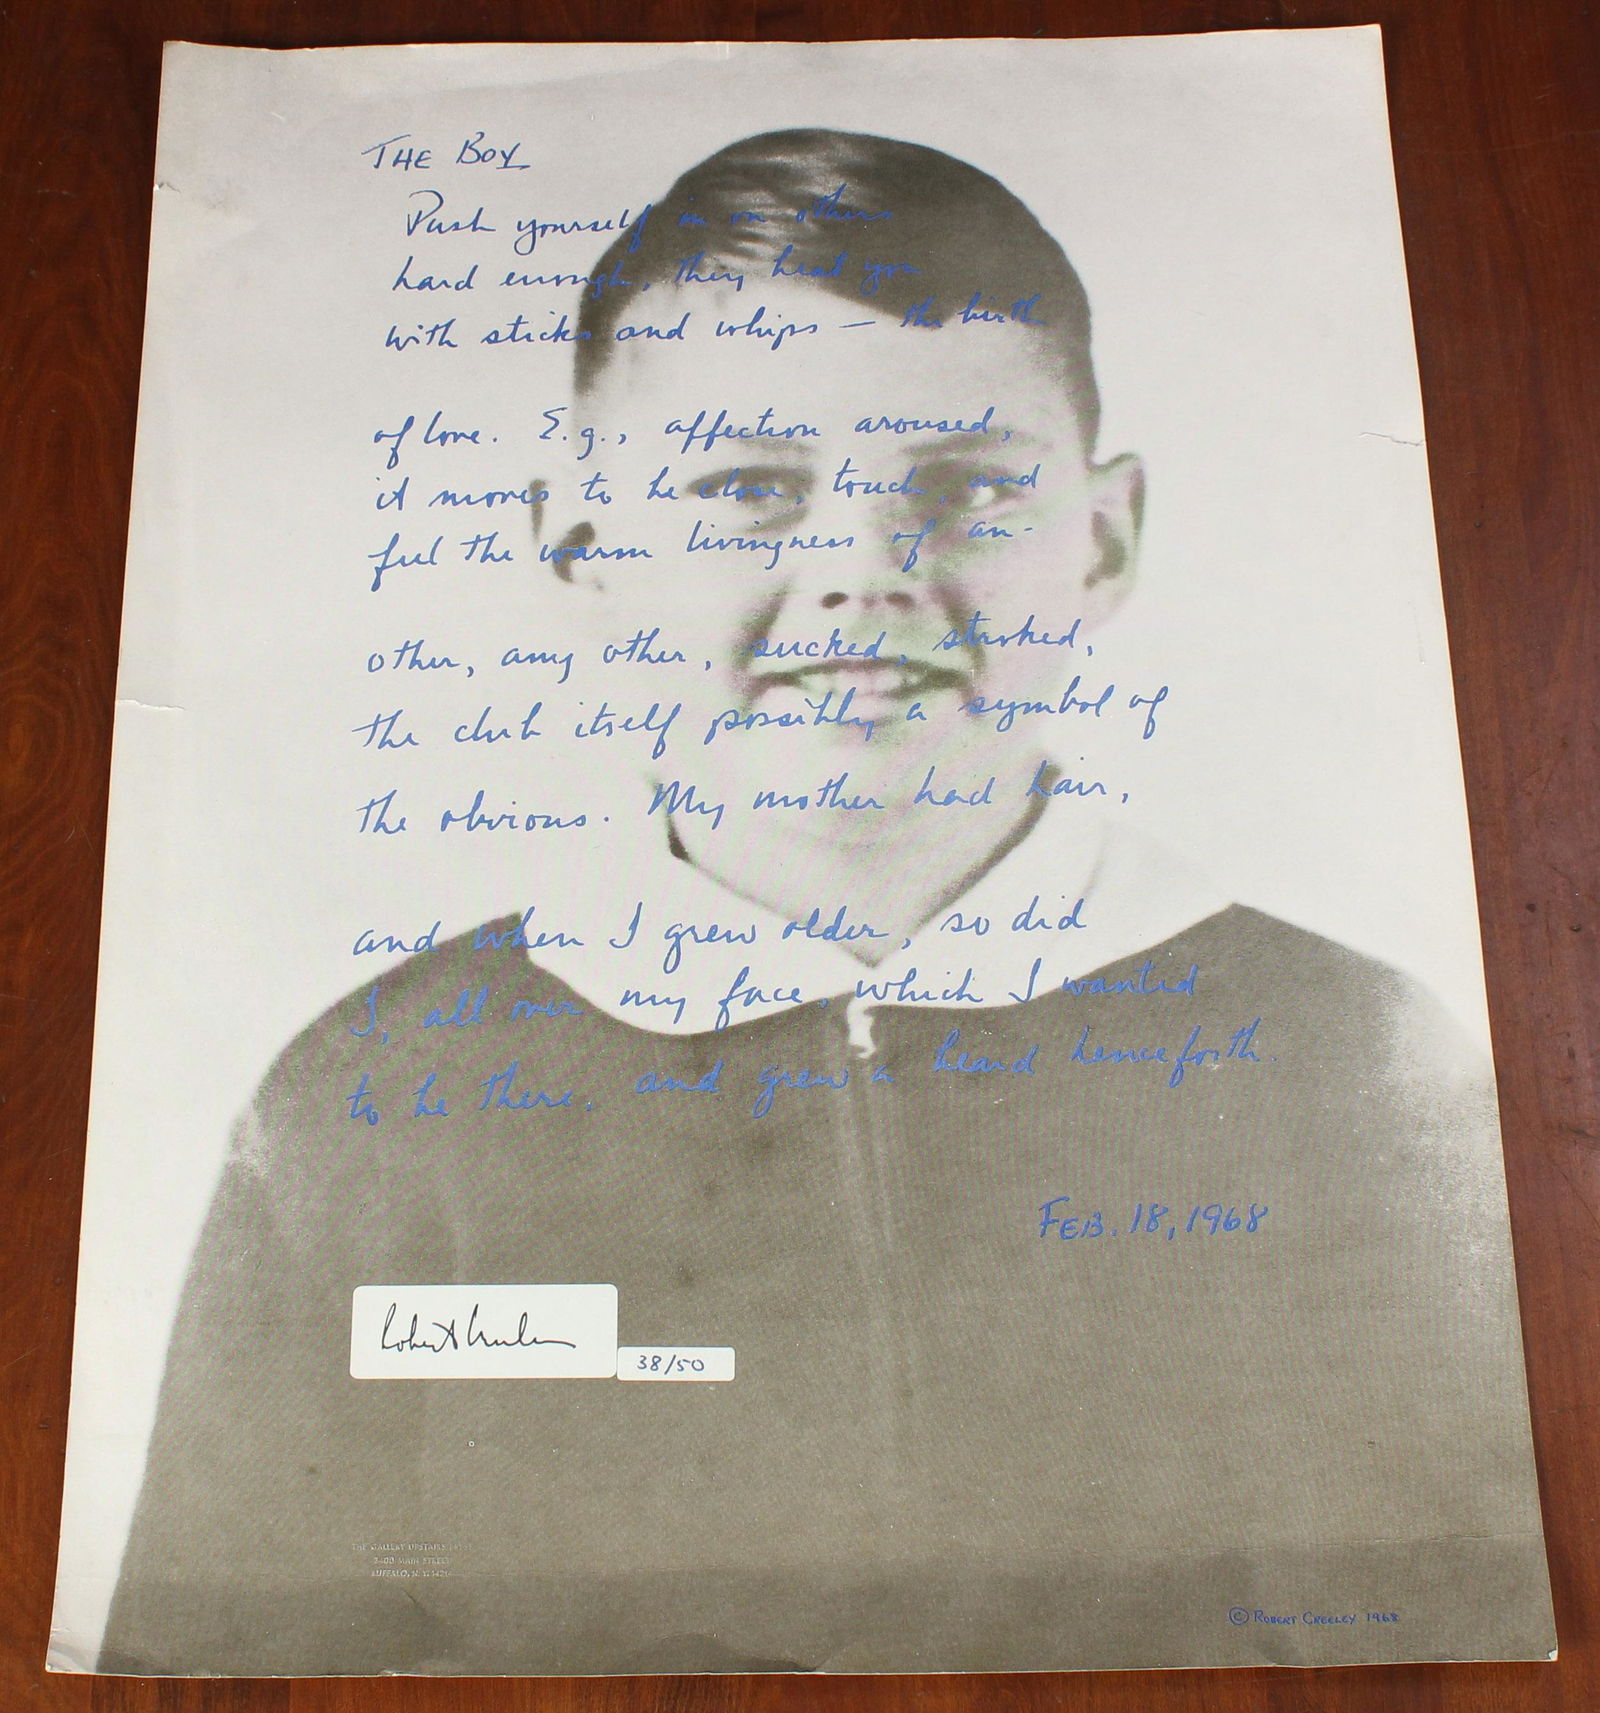 THE BOY
Push yourself in on others
hard enough, they beat you
with sticks and whips — the birth
of love. E.g., affection aroused,
it moves to be close, touch, and
feel the warm livingness of an-
other, any other, sucked, stroked,
the club itself possibly a symbol of
the obvious. My mother had hair,
and when I grew older, so did
I, all over my face, which I wanted
to be there, and grew a beard henceforth.
FEB. 18, 1968
Robert Creeley
38/50
THE GALLERY UPSTAIRS
MAIN STREET
BUFFALO, N.Y.
© ROBERT CREELEY 1968